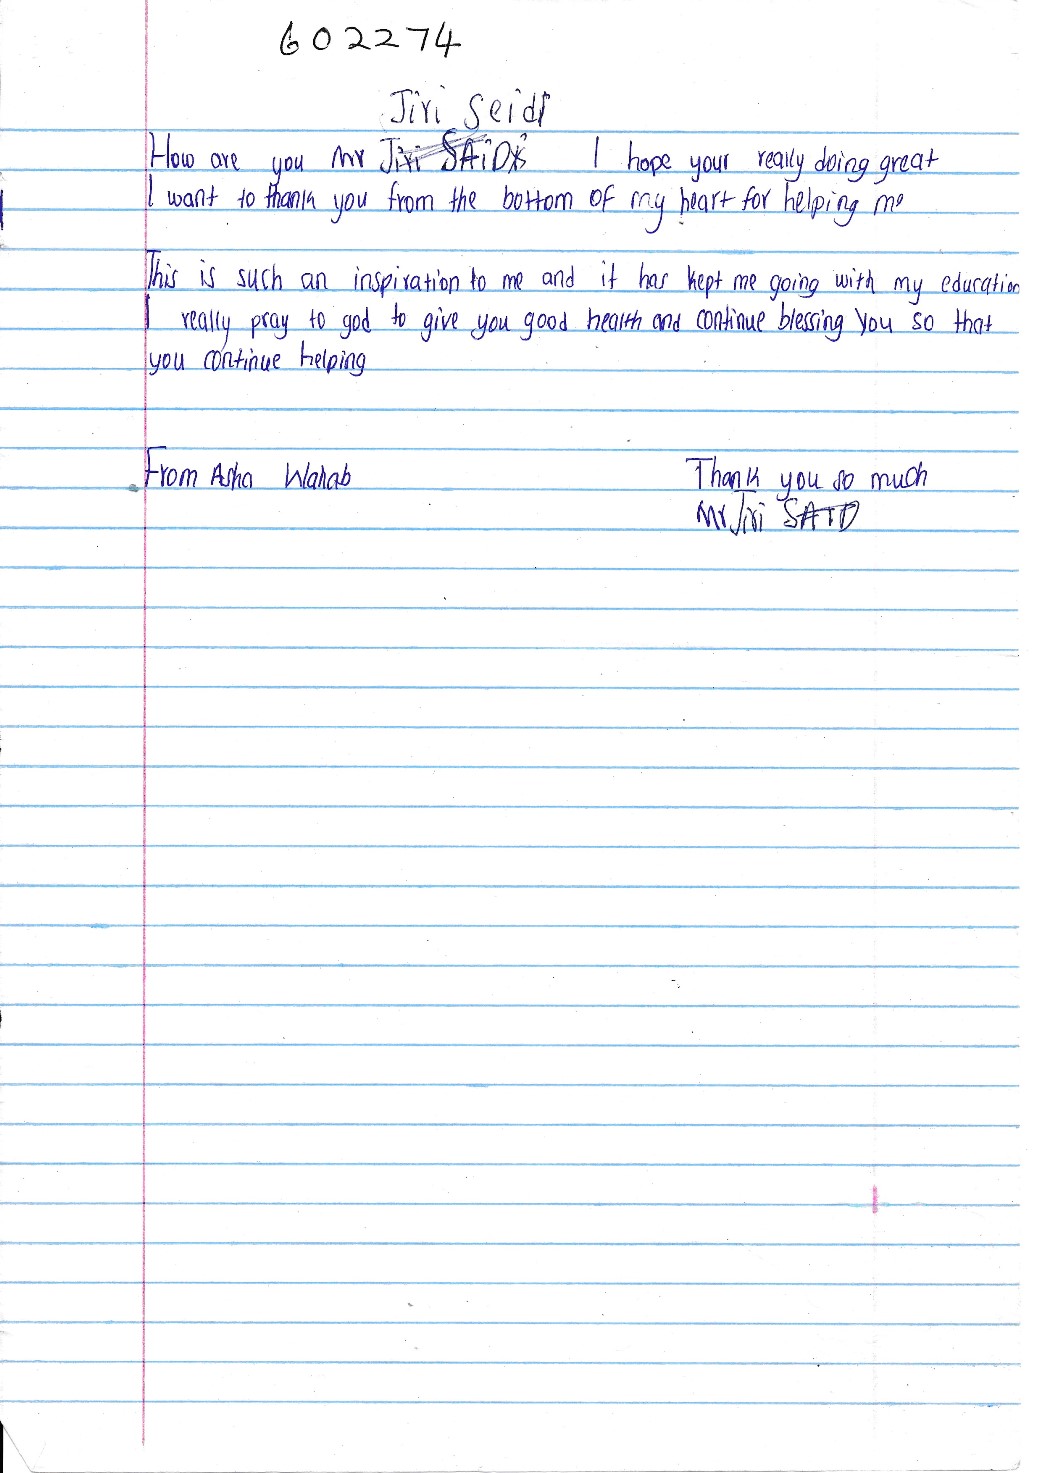 602274
Jiri Seidl
How are you Mr Jiri SAiDi I hope your really doing great
I want to thank you from the bottom of my heart for helping me
This is such an inspiration to me and it has kept me going with my education
I really pray to god to give you good health and continue blessing you so that
you continue helping
From Asha Wahab
Thank you so much
Mr Jiri SAID